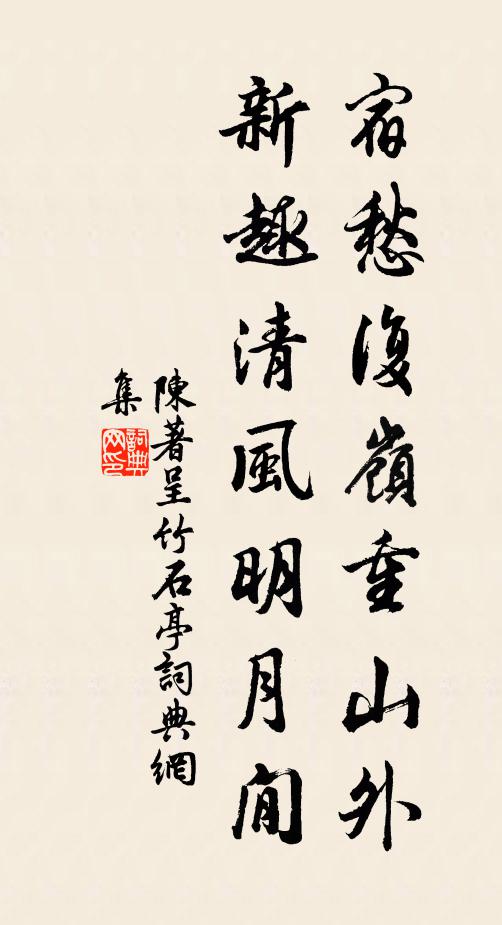 宿愁復嶺重山外
新趣清風明月間
陳著呈竹石亭詞典網
集
詞典
网印